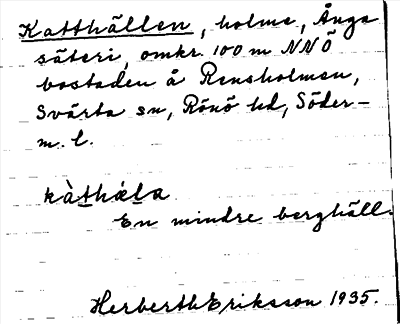 Katthällen, holme, Ånga
säteri, omkr. 100 m NNÖ
bostaden å Rensholmen,
Svärta sn, Rönö hd, Söder-
m. l.
kàthǽla
En mindre berghäll.
Herberth Eriksson 1935.